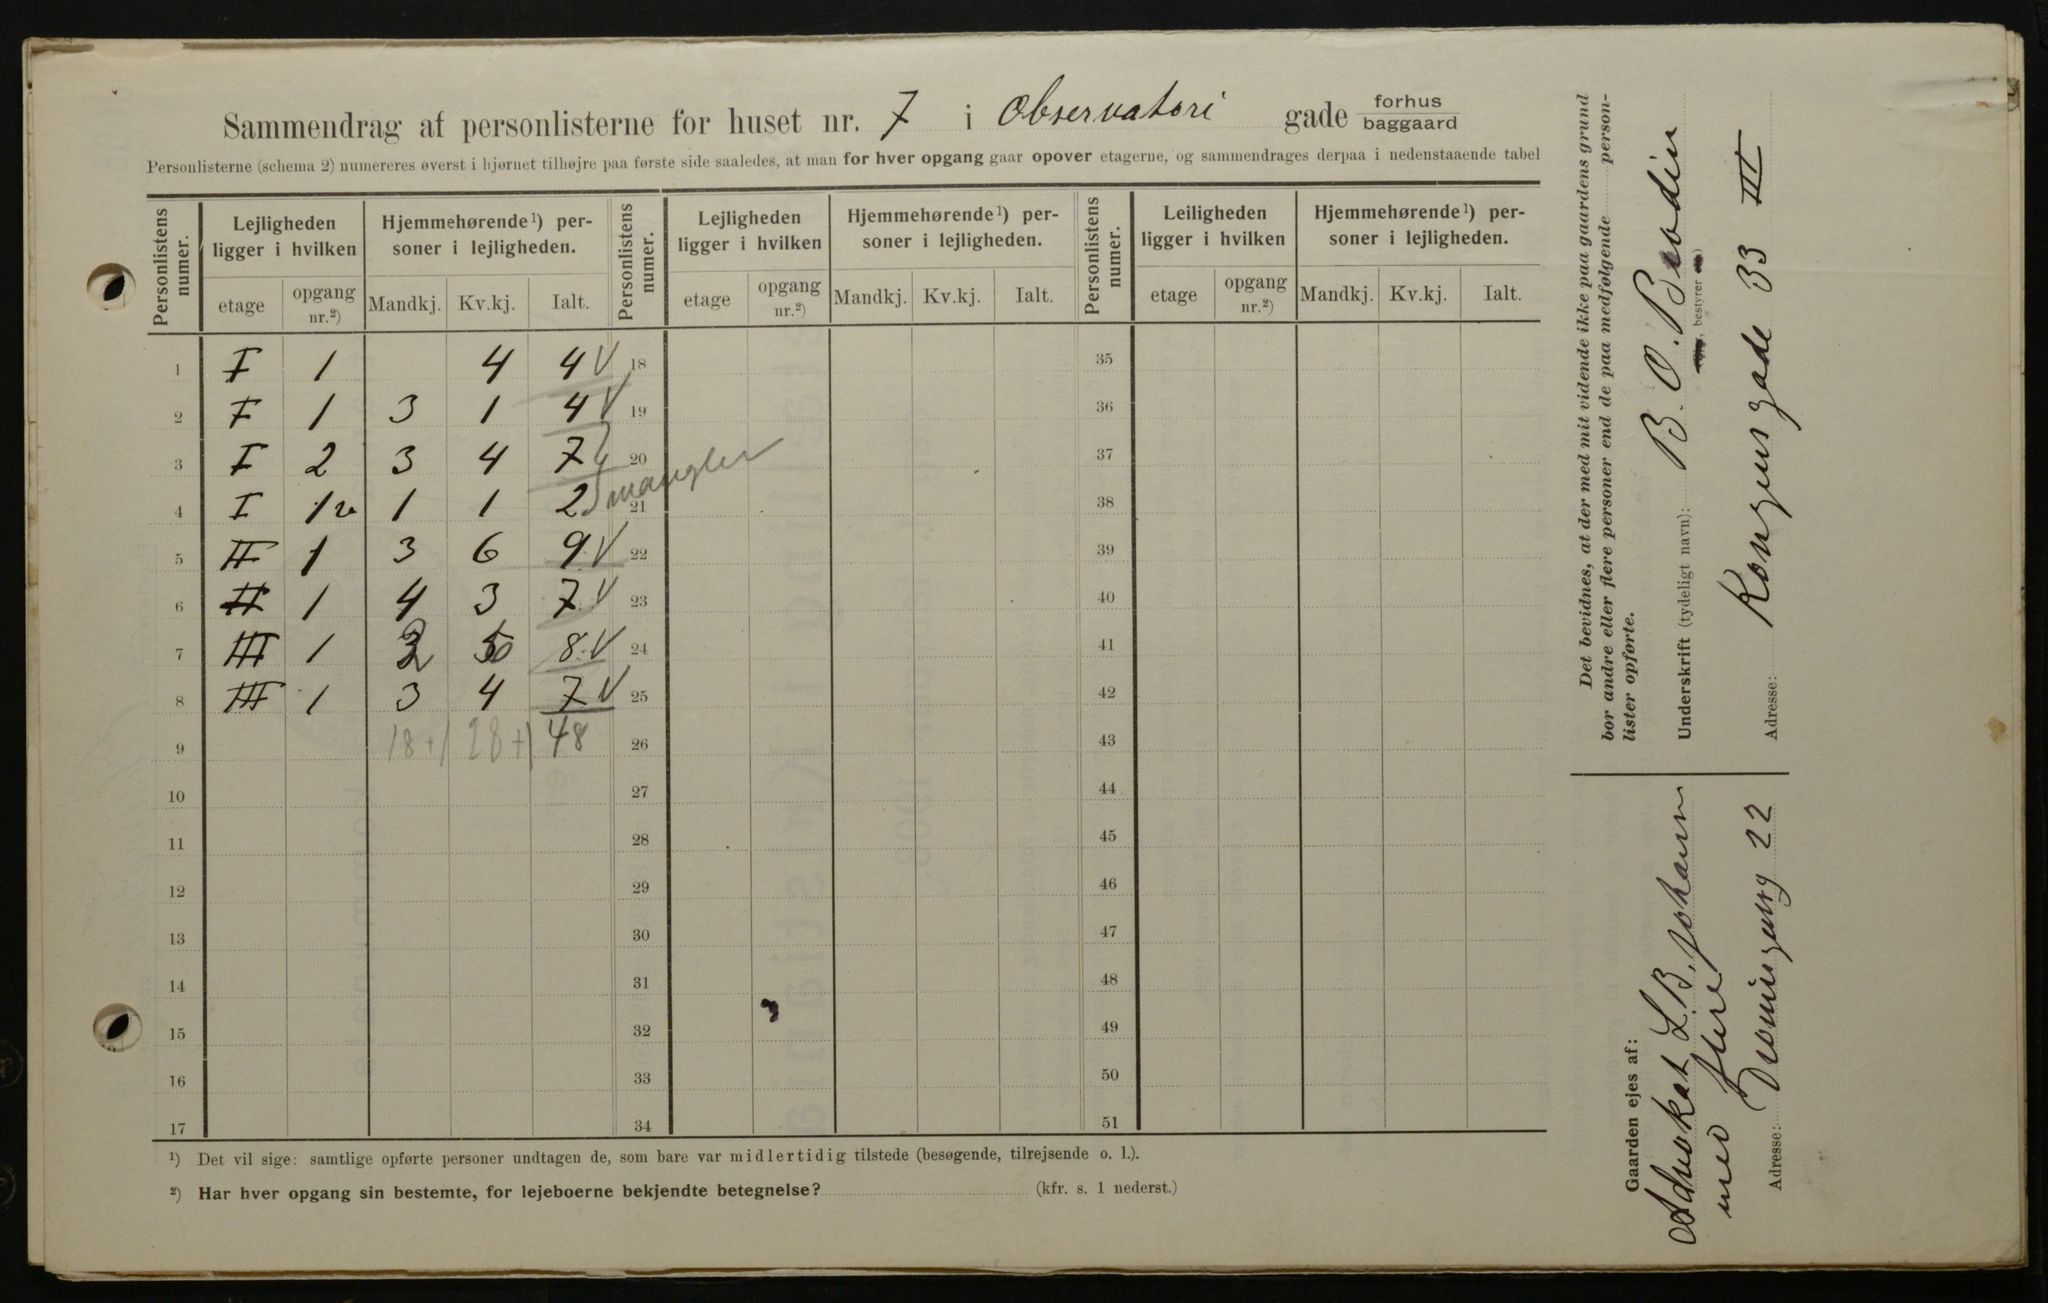 Sammendrag af personlisterne for huset nr. 7 i Observatori gade forhus baggaard
Personlisterne (schema 2) numereres øverst i hjørnet tilhøjre paa første side saaledes, at man for hver opgang gaar opover etagerne, og sammendrages derpaa i nedenstaaende tabel
Personlistens numer. Lejligheden ligger i hvilken Hjemmehørende¹) personer i lejligheden. Personlistens numer. Lejligheden ligger i hvilken Hjemmehørende¹) personer i lejligheden. Personlistens numer. Leiligheden ligger i hvilken Hjemmehørende¹) personer i lejligheden.
etage opgang nr.²) Mandkj. Kv.kj. Ialt. etage opgang nr.²) Mandkj. Kv.kj. Ialt. etage opgang nr.²) Mandkj. Kv.kj. Ialt.
1 I 1 4 4 V 18 35
2 I 1 3 1 4 V 19 36
3 I 2 3 4 7 20 37
4 I 1 1 1 2 mangler 21 38
5 II 1 3 6 9 V 22 39
6 II 1 4 3 7 V 23 40
7 III 1 8 V 24 41
8 III 1 3 4 7 V 25 42
9 18+1 28+1 48 26 43
10 27 44
11 28 45
12 29 46
13 30 47
14 31 48
15 32 49
16 33 50
17 34 51
¹) Det vil sige: samtlige opførte personer undtagen de, som bare var midlertidig tilstede (besøgende, tilrejsende o. l.).
²) Har hver opgang sin bestemte, for lejeboerne bekjendte betegnelse? (kfr. s. 1 nederst.)
Det bevidnes, at der med mit vidende ikke paa gaardens grund
bor andre eller flere personer end de paa medfølgende person-
lister opførte.
Underskrift (tydeligt navn): B. O. Brodin
bestyrer
Adresse: Kongensgade 33 III
Gaarden ejes af:
Advokat L. B. Johann
med flere
Adresse: Dronningensg 22